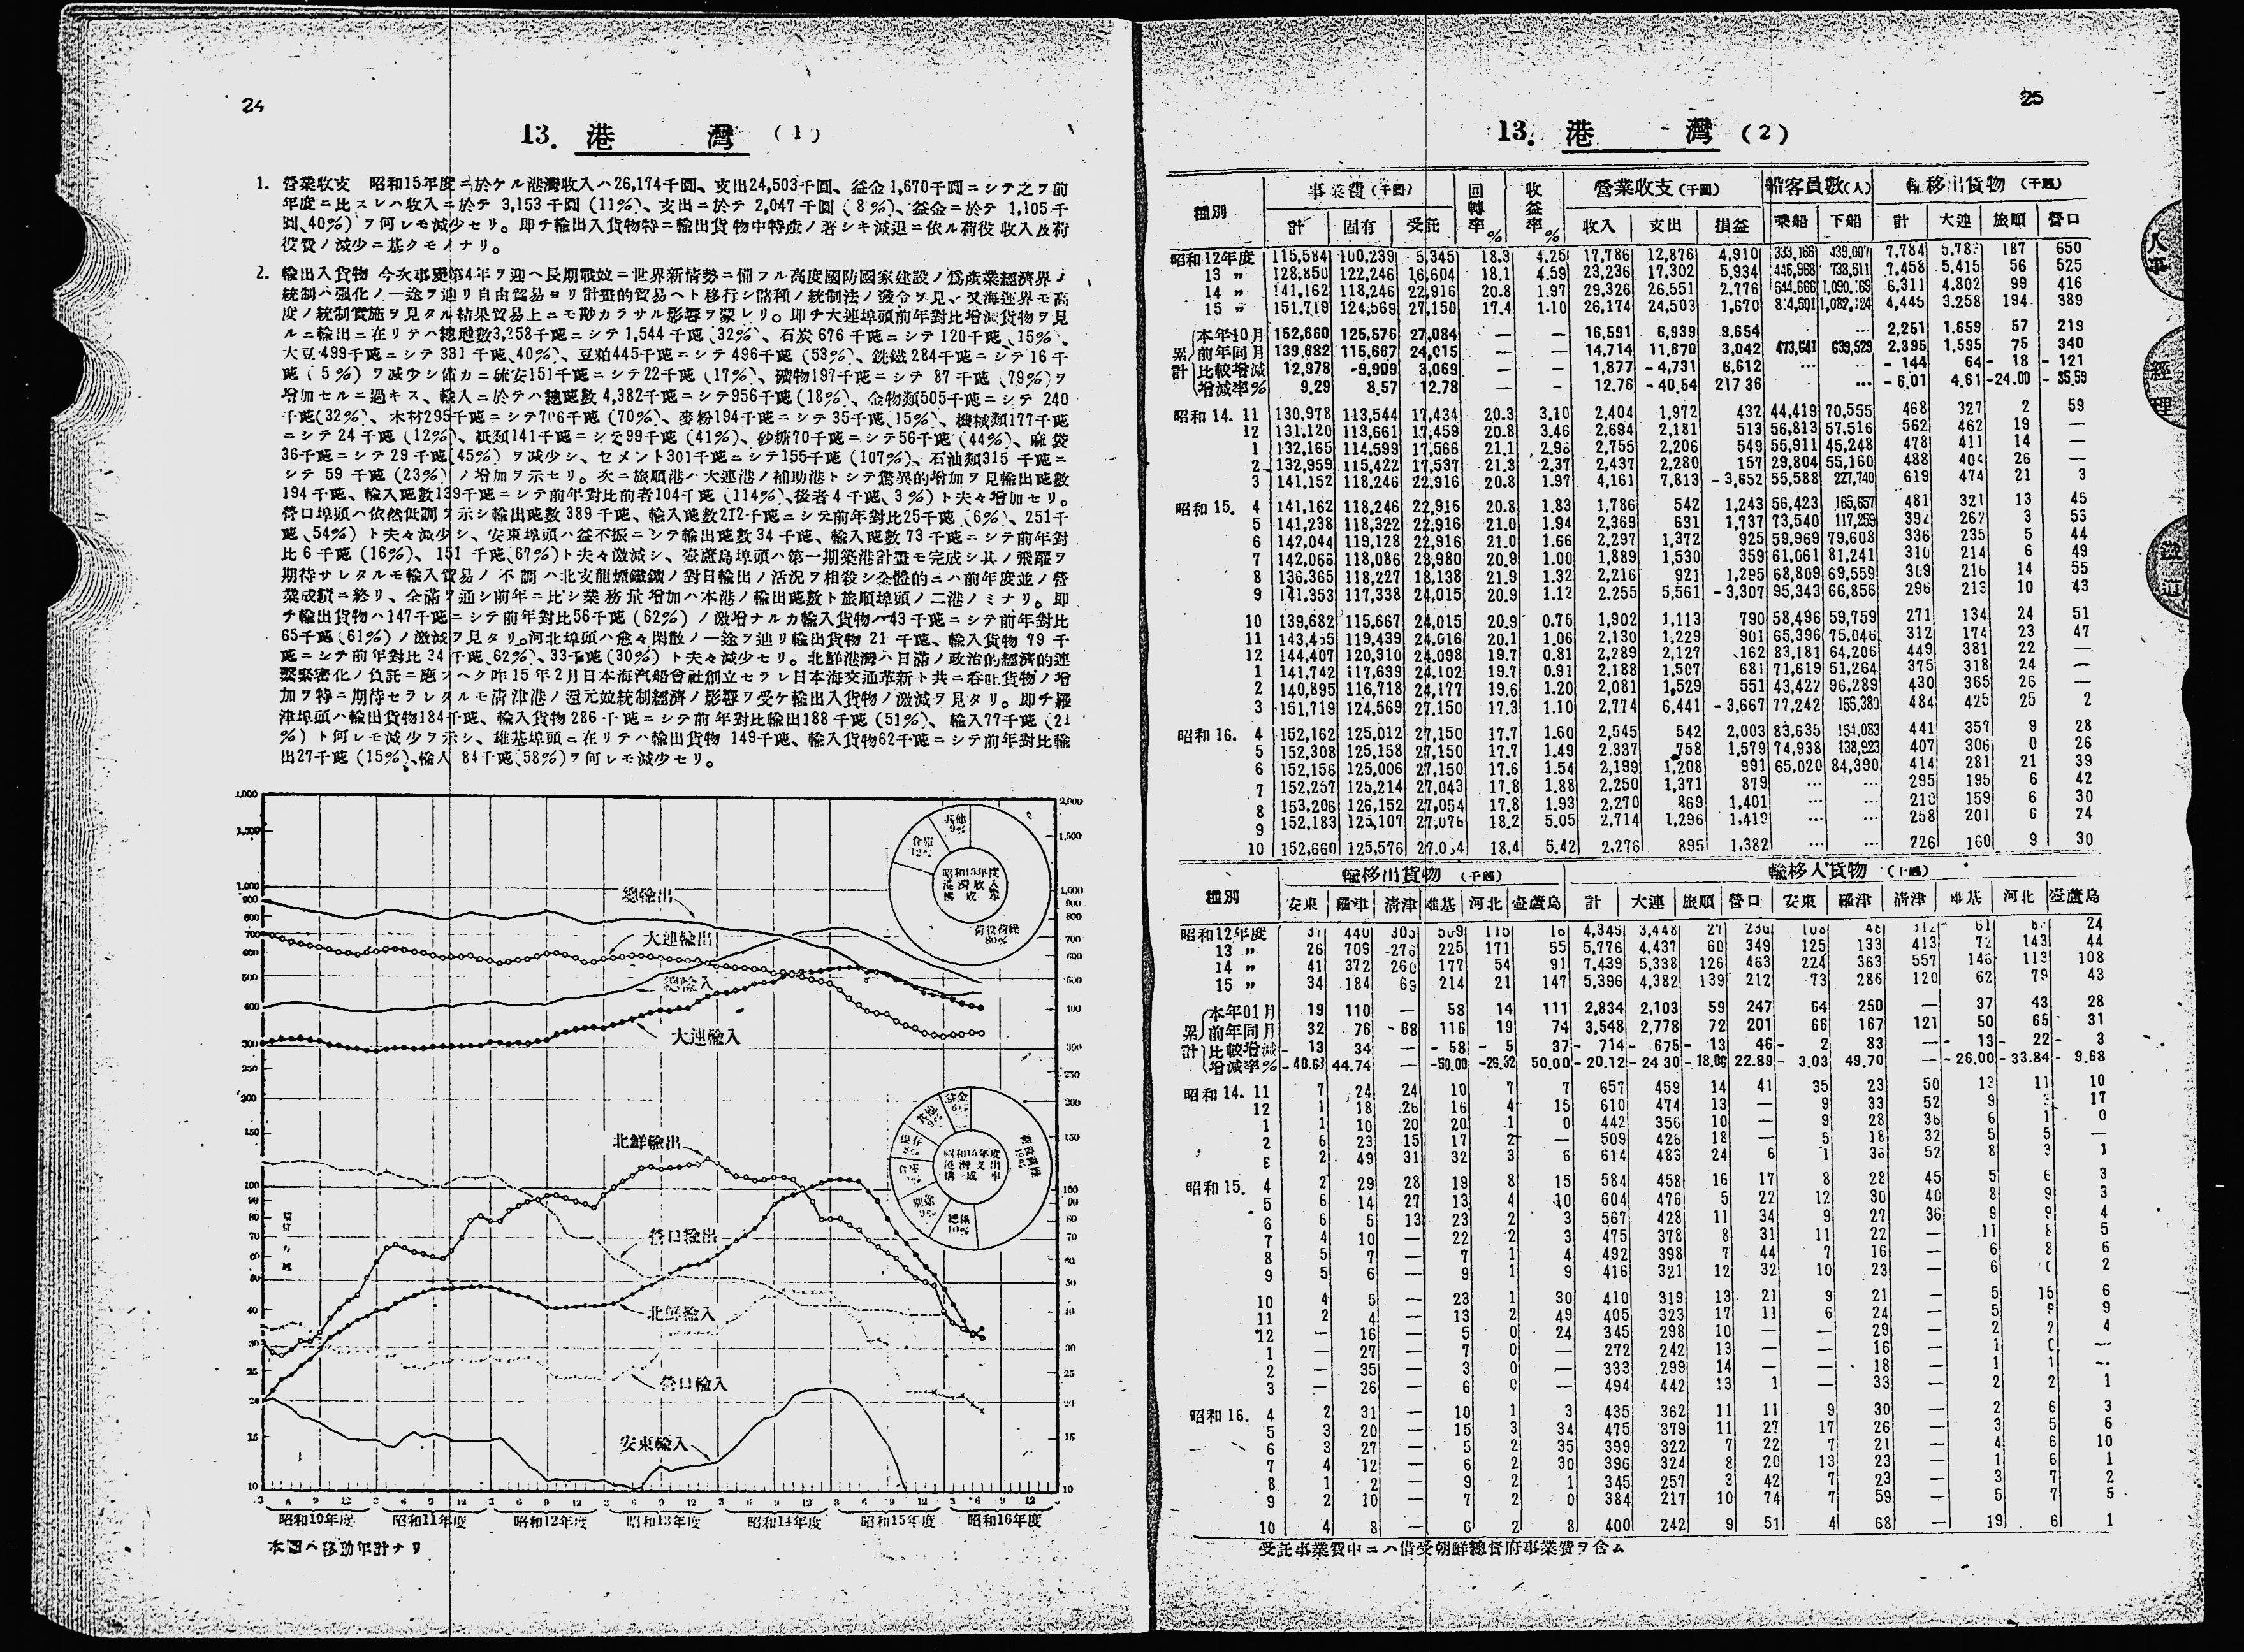 24
13. 港 灣 (1)
1. 營業收支 昭和15年度ニ於ケル港灣收入ハ26,174千圓、支出24,503千圓、益金1,670千圓ニシテ之ヲ前
年度ニ比スレハ收入ニ於テ 3,153千圓 (11%)、支出ニ於テ 2,047千圓 (8%)、益金ニ於テ 1,105千
圓、40%) ヲ何レモ減少セリ。即チ輸出入貨物特ニ輸出貨物中特産ノ著シキ減退ニ依ル荷役收入及荷
役費ノ減少ニ基クモノナリ。
2. 輸出入貨物 今次事變第4年ヲ迎ヘ長期戰竝ニ世界新情勢ニ備フル高度國防國家建設ノ爲産業經濟界ノ
統制ハ强化ノ一途ヲ辿リ自由貿易ヨリ計畫的貿易ヘト移行シ諸種ノ統制法ノ發令ヲ見、又海運界モ高
度ノ統制實施ヲ見タル結果貿易上ニモ尠カラサル影響ヲ蒙レリ。即チ大連埠頭前年對比增減貨物ヲ見
ルニ輸出ニ在リテハ總噸數3,258千噸ニシテ1,544千噸、32%)、石炭676千噸ニシテ120千噸、15%)、
大豆499千噸ニシテ331千噸、40%)、豆粕445千噸ニシテ496千噸 (53%)、銑鐵284千噸ニシテ16千
噸 (5%) ヲ減少シ僅カニ硫安151千噸ニシテ22千噸 (17%)、礦物197千噸ニシテ 87千噸 (79%)ヲ
增加セルニ過キス、輸入ニ於テハ總噸數4,382千噸ニシテ956千噸 (18%)、金物類505千噸ニシテ 240
千噸(32%)、木材295千噸ニシテ706千噸 (70%)、麥粉194千噸ニシテ35千噸、15%)、機械類177千噸
ニシテ24千噸 (12%)、紙類141千噸ニシテ99千噸 (41%)、砂糖70千噸ニシテ56千噸 (44%)、麻袋
36千噸ニシテ29千噸(45%) ヲ減少シ、セメント301千噸ニシテ155千噸 (107%)、石油類315千噸ニ
シテ 59千噸 (23%) ノ增加ヲ示セリ。次ニ旅順港ハ大連港ノ補助港トシテ驚異的增加ヲ見輸出噸數
194千噸、輸入噸數139千噸ニシテ前年對比前者104千噸 (114%)、後者4千噸、3%) ト夫々增加セリ。
營口埠頭ハ依然低調ヲ示シ輸出噸數389千噸、輸入噸數212千噸ニシテ前年對比25千噸 (6%)、251千
噸、54%) ト夫々減少シ、安東埠頭ハ益不振ニシテ輸出噸數34千噸、輸入噸數73千噸ニシテ前年對
比6千噸 (16%)、151千噸、67%)ト夫々激減シ、壺蘆島埠頭ハ第一期築港計畫モ完成シ其ノ飛躍ヲ
期待サレタルモ輸入貿易ノ不調ハ北支龍煙鐵鑛ノ對日輸出ノ活況ヲ相殺シ全體的ニハ前年度並ノ營
業成績ニ終リ、全滿ヲ通シ前年ニ比シ業務量增加ハ本港ノ輸出噸數ト旅順埠頭ノ二港ノミナリ。即
チ輸出貨物ハ147千噸ニシテ前年對比56千噸 (62%) ノ激增ナルカ輸入貨物ハ43千噸ニシテ前年對比
65千噸(61%) ノ激減ヲ見タリ。河北埠頭ハ愈々閑散ノ一途ヲ辿リ輸出貨物 21千噸、輸入貨物 79千
噸ニシテ前年對比34千噸、62%)、33千噸 (30%) ト夫々減少セリ。北鮮港灣ハ日滿ノ政治的經濟的連
繫緊密化ノ負託ニ應フヘク昨15年2月日本海汽船會社創立セラレ日本海交通革新ト共ニ呑吐貨物ノ增
加ヲ特ニ期待セラレタルモ淸津港ノ還元竝統制經濟ノ影響ヲ受ケ輸出入貨物ノ激減ヲ見タリ。即チ羅
津埠頭ハ輸出貨物184千噸、輸入貨物286千噸ニシテ前年對比輸出188千噸 (51%)、輸入77千噸 (21
%) ト何レモ減少ヲ示シ、雄基埠頭ニ在リテハ輸出貨物 149千噸、輸入貨物62千噸ニシテ前年對比輸
出27千噸 (15%)、輸入 84千噸(58%)ヲ何レモ減少セリ。
總輸出
大連輸出
總輸入
大連輸入
北鮮輸出
營口輸出
北鮮輸入
營口輸入
安東輸入
昭和15年度
港灣收入
構成率
荷役荷繰
80%
其他
9%
昭和15年度
港灣支出
構成率
總係
10%
昭和10年度 昭和11年度 昭和12年度 昭和13年度 昭和14年度 昭和15年度 昭和16年度
本圖ハ移動年計ナリ
25
13. 港 灣 (2)
種別 事業費(千圓) 回轉率% 收益率% 營業收支(千圓) 船客員數(人) 輸移出貨物 (千噸)
計 固有 受託 收入 支出 損益 乘船 下船 計 大連 旅順 營口
昭和12年度 115,584 100,239 5,345 18.3 4.25 17,786 12,876 4,910 333,166 439,007 7,784 5,783 187 650
13 〃 128,850 122,246 16,604 18.1 4.59 23,236 17,302 5,934 446,968 738,511 7,458 5,415 56 525
14 〃 141,162 118,246 22,916 20.8 1.97 29,326 26,551 2,776 644,666 1,090,169 6,311 4,802 99 416
15 〃 151,719 124,569 27,150 17.4 1.10 26,174 24,503 1,670 814,501 1,082,124 4,445 3,258 194 389
累計 本年10月 152,660 125,576 27,084 — — 16,591 6,939 9,654 … 2,251 1,659 57 219
前年同月 139,682 115,667 24,015 — — 14,714 11,670 3,042 473,641 639,529 2,395 1,595 75 340
比較增減 12,978 -9,909 3,069 — — 1,877 -4,731 6,612 … … -144 64 -18 -121
增減率% 9.29 8.57 12.78 — — 12.76 -40.54 217.36 … -6.01 4.61 -24.00 -35.59
昭和 14. 11 130,978 113,544 17,434 20.3 3.10 2,404 1,972 432 44,419 70,555 468 327 2 59
12 131,120 113,661 17,459 20.8 3.46 2,694 2,181 513 56,813 57,516 562 462 19 —
1 132,165 114,599 17,566 21.1 2.96 2,755 2,206 549 55,911 45,248 478 411 14 —
2 132,959 115,422 17,537 21.3 2.37 2,437 2,280 157 29,804 55,160 488 404 26 —
3 141,152 118,246 22,916 20.8 1.97 4,161 7,813 -3,652 55,588 227,740 619 474 21 3
昭和 15. 4 141,162 118,246 22,916 20.8 1.83 1,786 542 1,243 56,423 165,657 481 321 13 45
5 141,238 118,322 22,916 21.0 1.94 2,369 631 1,737 73,540 117,259 392 262 3 53
6 142,044 119,128 22,916 21.0 1.66 2,297 1,372 925 59,969 79,608 336 235 5 44
7 142,066 118,086 23,980 20.9 1.00 1,889 1,530 359 61,061 81,241 310 214 6 49
8 136,365 118,227 18,138 21.9 1.32 2,216 921 1,295 68,809 69,559 309 216 14 55
9 141,353 117,338 24,015 20.9 1.12 2,255 5,561 -3,307 95,343 66,856 296 213 10 43
10 139,682 115,667 24,015 20.9 0.75 1,902 1,113 790 58,496 59,759 271 134 24 51
11 143,455 119,439 24,616 20.1 1.06 2,130 1,229 901 65,396 75,046 312 174 23 47
12 144,407 120,310 24,098 19.7 0.81 2,289 2,127 162 83,181 64,206 449 381 22 —
1 141,742 117,639 24,102 19.7 0.91 2,188 1,507 681 71,619 51,264 375 318 24 —
2 140,895 116,718 24,177 19.6 1.20 2,081 1,529 551 43,427 96,289 430 365 26 —
3 151,719 124,569 27,150 17.3 1.10 2,774 6,441 -3,667 77,242 155,383 484 425 25 2
昭和 16. 4 152,162 125,012 27,150 17.7 1.60 2,545 542 2,003 83,635 154,083 441 357 9 28
5 152,308 125,158 27,150 17.7 1.49 2,337 758 1,579 74,938 138,923 407 306 0 26
6 152,156 125,006 27,150 17.6 1.54 2,199 1,208 991 65,020 84,390 414 281 21 39
7 152,257 125,214 27,043 17.8 1.88 2,250 1,371 879 … … 295 195 6 42
8 153,206 126,152 27,054 17.8 1.93 2,270 869 1,401 … … 210 159 6 30
9 152,183 125,107 27,076 18.2 5.05 2,714 1,296 1,419 … … 258 201 6 24
10 152,660 125,576 27,084 18.4 5.42 2,276 895 1,382 … … 226 160 9 30
種別 輸移出貨物 (千噸) 輸移入貨物 (千噸)
安東 羅津 淸津 雄基 河北 壺蘆島 計 大連 旅順 營口 安東 羅津 淸津 雄基 河北 壺蘆島
昭和12年度 37 440 305 509 115 16 4,345 3,448 27 236 108 48 312 61 24
13 〃 26 709 276 225 171 55 5,776 4,437 60 349 125 133 413 72 143 44
14 〃 41 372 260 177 54 91 7,439 5,338 126 463 224 363 557 146 113 108
15 〃 34 184 69 214 21 147 5,396 4,382 139 212 73 286 120 62 79 43
累計 本年01月 19 110 — 58 14 111 2,834 2,103 59 247 64 250 — 37 43 28
前年同月 32 76 68 116 19 74 3,548 2,778 72 201 66 167 121 50 65 31
比較增減 -13 34 — -58 -5 37 -714 -675 -13 46 -2 83 — -13 -22 -3
增減率% -40.63 44.74 — -50.00 -26.32 50.00 -20.12 -24.30 -18.06 22.89 -3.03 49.70 — -26.00 -33.84 -9.68
昭和 14. 11 7 24 24 10 7 7 657 459 14 41 35 23 50 13 11 10
12 1 18 26 16 4 15 610 474 13 — 9 33 52 9 17
1 1 10 20 20 1 0 442 356 10 — 9 28 36 6 1 0
2 6 23 15 17 2 — 509 426 18 — 5 18 32 5 5 —
2 49 31 32 3 6 614 483 24 6 1 36 52 8 3 1
昭和 15. 4 2 29 28 19 8 15 584 458 16 17 8 28 45 5 6 3
5 6 14 27 13 4 10 604 476 5 22 12 30 40 8 9 3
6 6 5 13 23 2 3 567 428 11 34 9 27 36 9 9 4
7 4 10 — 22 2 3 475 378 8 31 11 22 — 11 8 5
8 5 7 — 7 1 4 492 398 7 44 7 16 — 6 8 6
9 5 6 — 9 1 9 416 321 12 32 10 23 — 6 2
10 4 5 — 23 1 30 410 319 13 21 9 21 — 5 15 6
11 2 4 — 13 2 49 405 323 17 11 6 24 — 5 9 9
12 — 16 — 5 0 24 345 298 10 — — 29 — 2 7 4
1 — 27 — 7 0 — 272 242 13 — — 16 — 1 0 —
2 — 35 — 3 0 — 333 299 14 — — 18 — 1 1 —
3 — 26 — 6 0 — 494 442 13 1 — 33 — 2 2 1
昭和 16. 4 2 31 — 10 1 3 435 362 11 11 9 30 — 2 6 3
5 3 20 — 15 3 34 475 379 11 27 17 26 — 3 5 6
6 3 27 — 5 2 35 399 322 7 22 7 21 — 4 6 10
7 4 12 — 6 2 30 396 324 8 20 13 23 — 1 6 1
8 1 2 — 9 2 1 345 257 3 42 7 23 — 3 7 2
9 2 10 — 7 2 0 384 217 10 74 7 59 — 5 7 5
10 4 8 — 6 2 8 400 242 9 51 4 68 — 19 6 1
受託事業費中ニハ借受朝鮮總督府事業費ヲ含ム
人事
經理